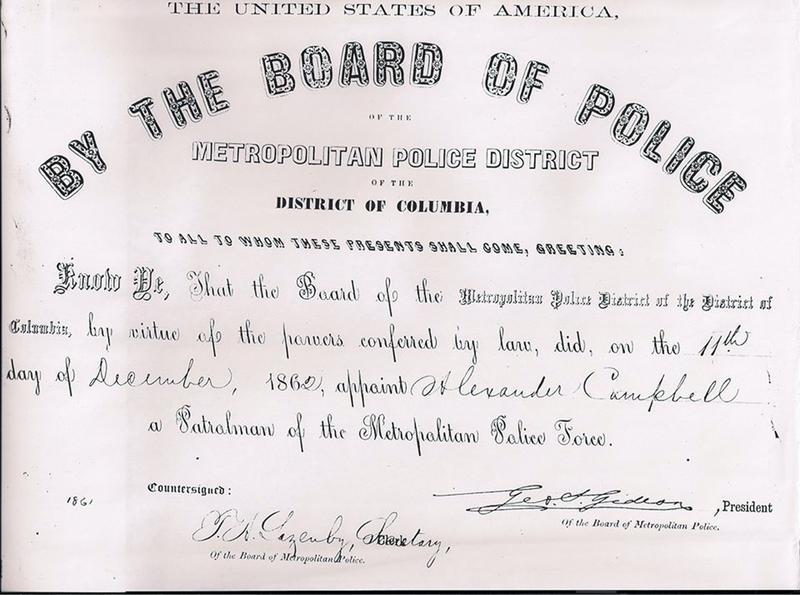 THE UNITED STATES OF AMERICA,
BY THE BOARD OF POLICE
OF THE
METROPOLITAN POLICE DISTRICT
OF THE
DISTRICT OF COLUMBIA,
TO ALL TO WHOM THESE PRESENTS SHALL COME, GREETING:
Know Ye, That the Board of the Metropolitan Police District of the District of
Columbia, by virtue of the powers conferred by law, did, on the 11th
day of December, 1862, appoint Alexander Campbell
a Patralman of the Metropolitan Police Force.
Countersigned:
1861
Geo. S. Gideon, President
Of the Board of Metropolitan Police.
T. K. Lazenby, Secretary,
Clerk
Of the Board of Metropolitan Police.